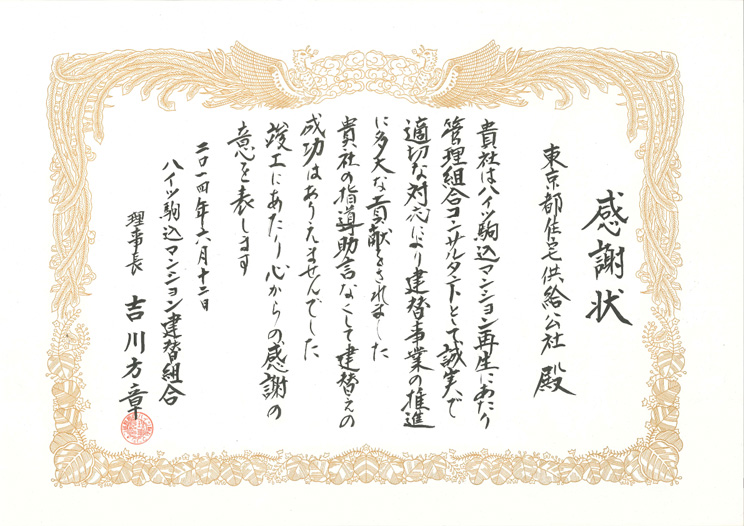 感謝状
東京都住宅供給公社 殿
貴社はハイツ駒込マンション再生にあたり
管理組合コンサルタントとして誠実で
適切な対応により建替事業の推進
に多大な貢献をされました
貴社の指導助言なくして建替えの
成功はありえませんでした
竣工にあたり心からの感謝の
意を表します
二〇一四年六月十二日
ハイツ駒込マンション建替組合
理事長 吉川方章